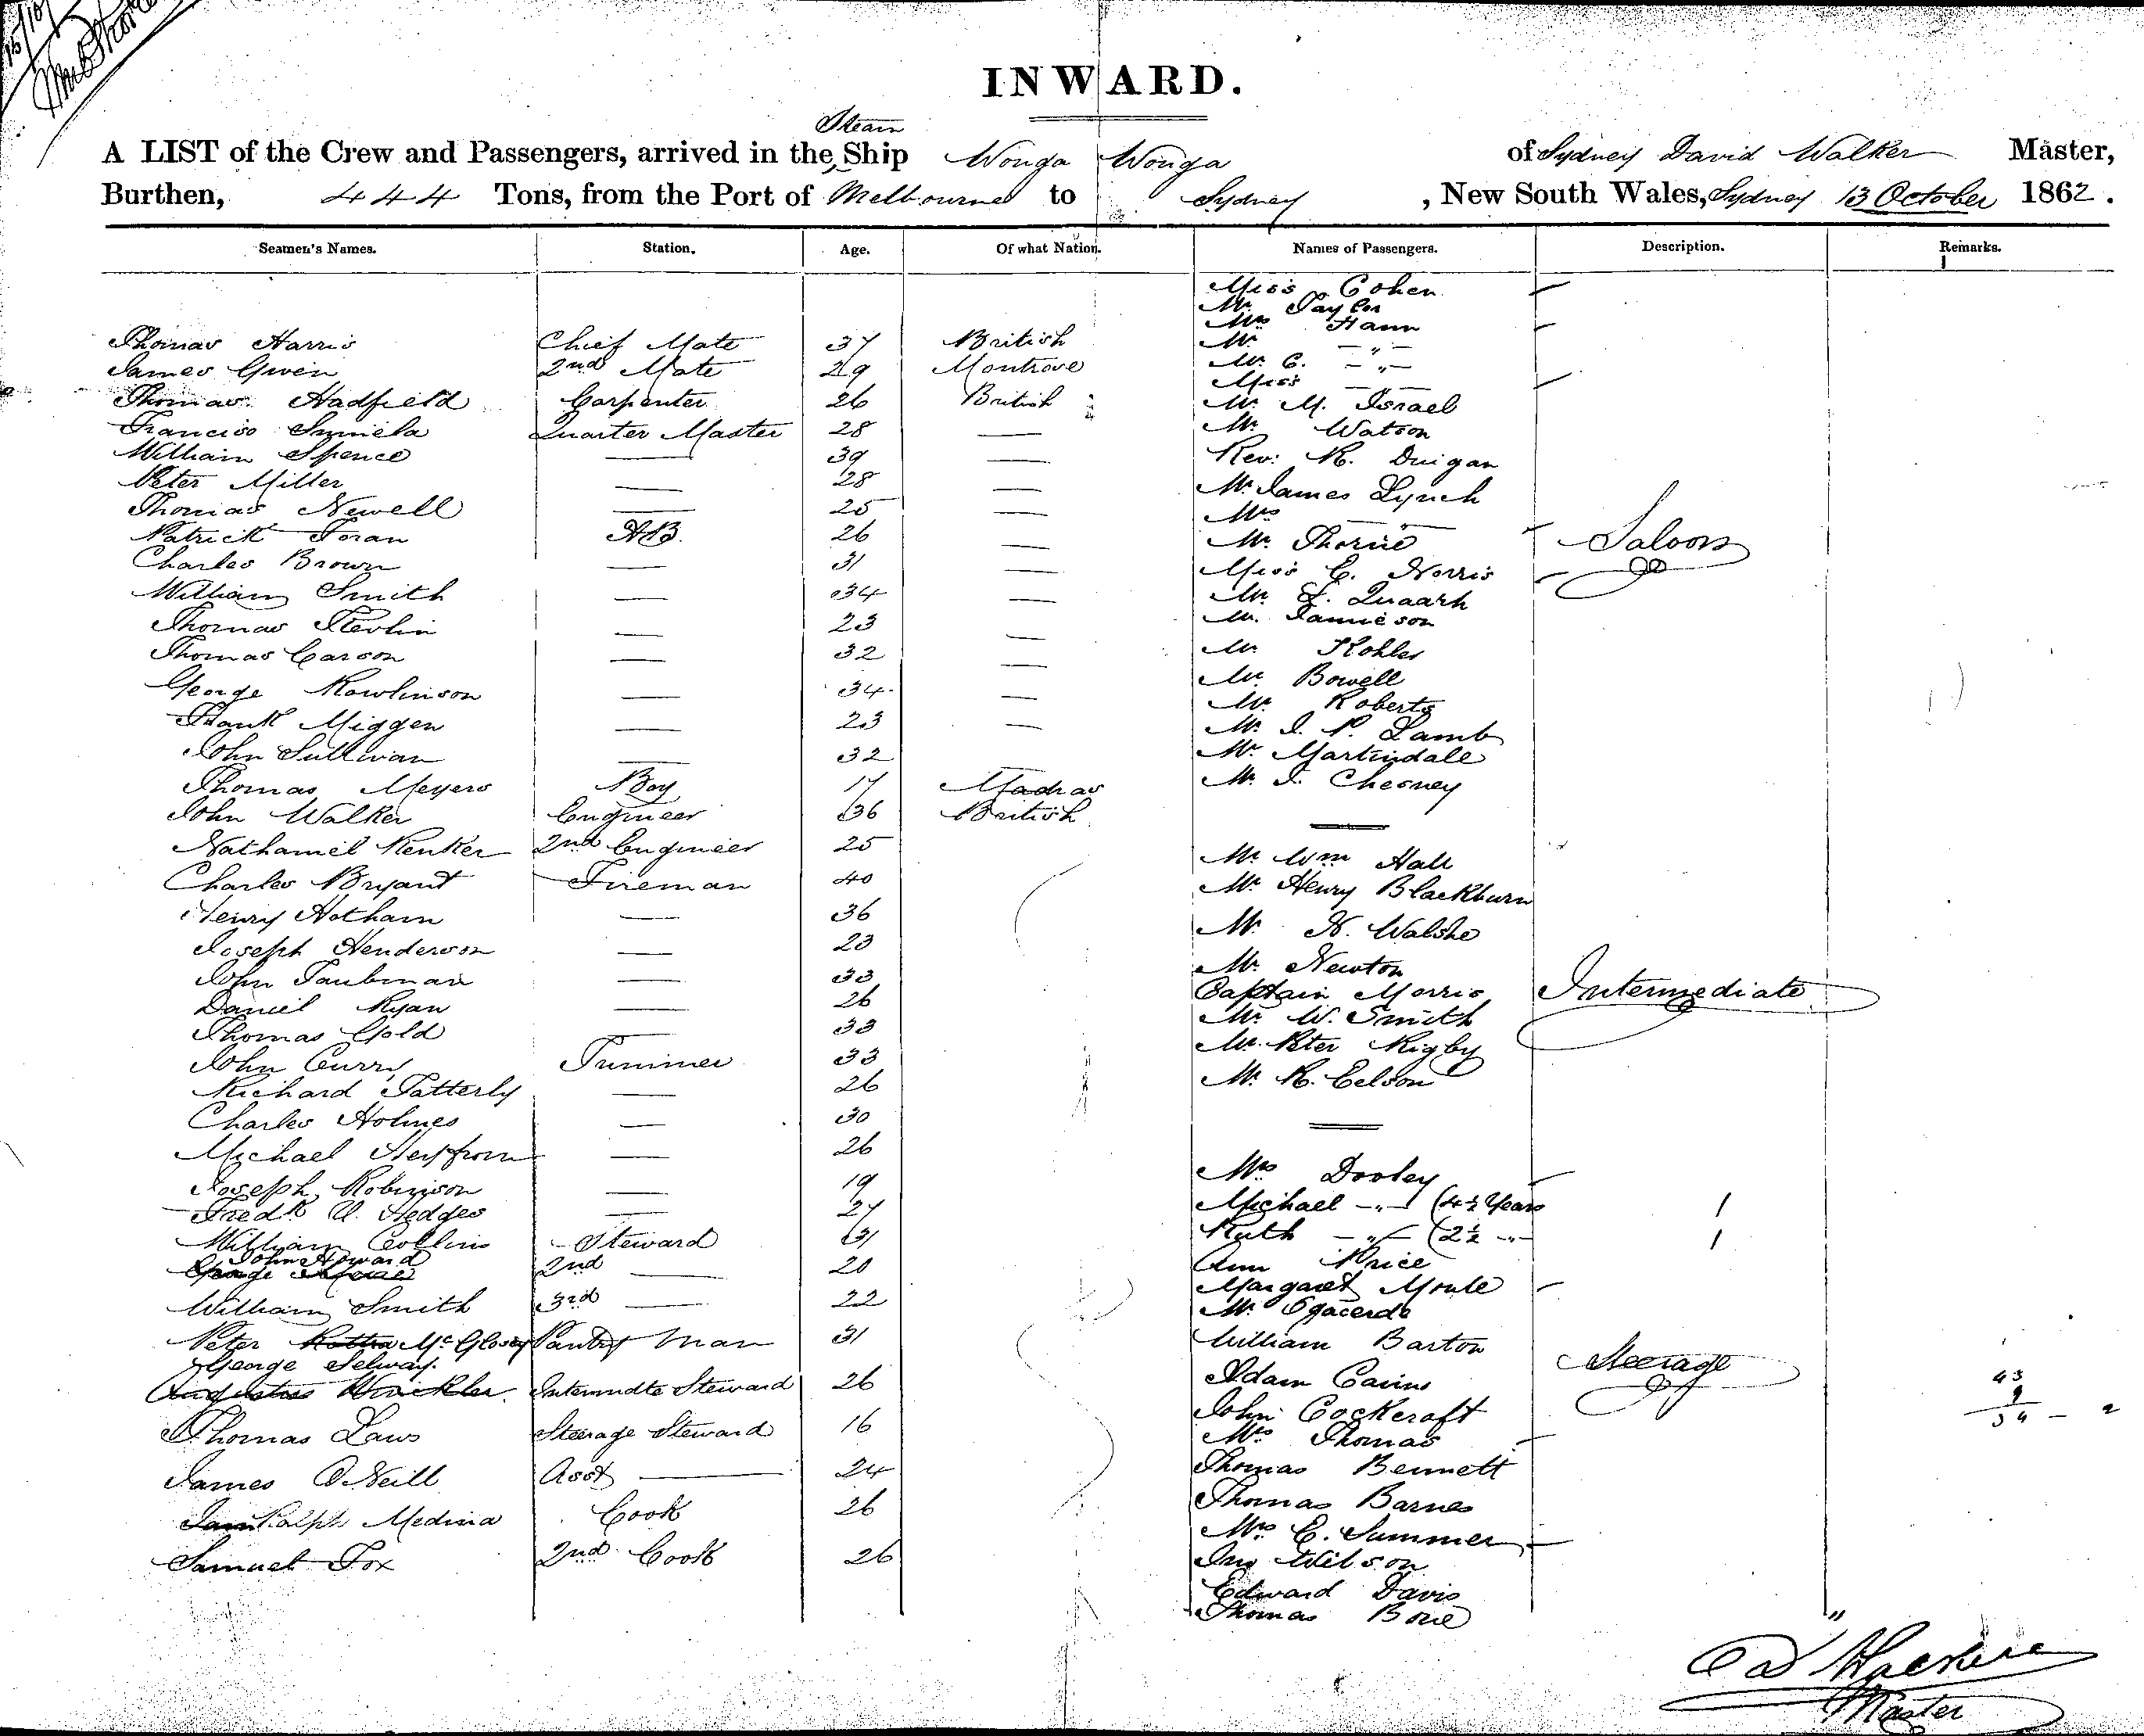 INWARD.
Steam
A LIST of the Crew and Passengers, arrived in the Ship Wonga Wonga of Sydney David Walker Master,
Burthen, 444 Tons, from the Port of Melbourne to Sydney, New South Wales, Sydney 13 October 1862.
Seamen's Names. Station. Age. Of what Nation. Names of Passengers. Description. Remarks.
Thomas Harris Chief Mate 37 British
James Gwen 2nd Mate 29 Montrose
Thomas Hadfield Carpenter 26 British
Francisco Quarter Master 28 —
William Spence — 39 —
Peter Miller — 28 —
Thomas Newell — 25 —
Patrick Foran AB. 26 —
Charles Brown — 31 —
William Smith — 34 —
Thomas — 23 —
Thomas Carson — 32 —
George Rowlinson — 34 —
Frank Miggen — 23 —
John Sullivan — 32 —
Thomas Meyers Boy 17 Madras
John Walker Engineer 36 British
Nathaniel Renker 2nd Engineer 25
Charles Bryant Fireman 40
Henry Hotham — 36
Joseph Henderson — 23
John Taubman — 33
Daniel Ryan — 26
Thomas Gold — 33
John Curry Trimmer 33
Richard Tatterly — 26
Charles Holmes — 30
Michael — 26
Joseph Robinson — 19
Fredk U. Hedges — 27
William Collins Steward 31
John Howard
George 2nd — 20
William Smith 3rd — 22
Peter McGlosey Pantry Man 31
George Selway
Intermdte Steward 26
Thomas Laws Steerage Steward 16
James O'Neill Asst — 24
Ralph Medina Cook 26
Samuel Fox 2nd Cook 26
Miss Cohen
Mr. Taylor
Mrs Hann
Mr. — " —
Mr. C. — " —
Miss — " —
Mr. M. Israel
Mr Watson
Rev: R. Duigan
Mr James Lynch
Mrs —
Mr. Thorne
Miss C. Norris
Mr. F. Quaarh
Mr. Jamieson
Mr Kohler
Mr. Bowell
Mr. Roberts
Mr. J. P. Lamb
Mr. Martindale
Mr. J. Chesney
Saloon
Mr Wm Hall
Mr Henry Blackburn
Mr. N. Walshe
Mr. Newton
Captain Morris
Mr. W. Smith
Mr. Peter Rigby
Mr. R. Celson
Intermediate
Mrs Dooley
Michael — " — (4½ Years
Ruth — " — (2½ — " —
Ann Price
Margaret Moule
Mr.
William Barton
Adam Cairns
John Cockcroft
Mrs Thomas
Thomas Bennett
Thomas Barnes
Mrs C. Summer
Jno Wilson
Edward Davis
Thomas
Steerage
Master